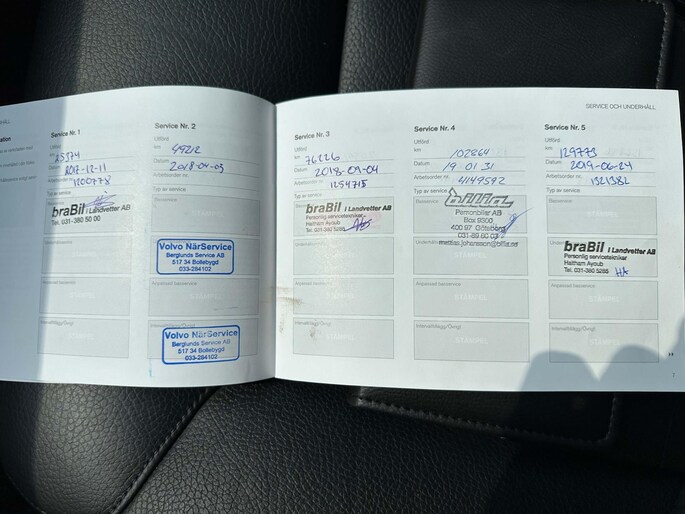 SERVICE OCH UNDERHÅLL
Service Nr. 1
Utförd
km 25374
Datum 2017-12-11
1200778
Typ av service
braBil i Landvetter AB
Tel. 031-380 50 00
Service Nr. 2
Utförd
km 49212
Datum 2018-04-03
Arbetsorder nr.
Typ av service
Basservice
Volvo NärService
Berglunds Service AB
517 34 Bollebygd
033-284102
Anpassad basservice
Volvo NärService
Berglunds Service AB
517 34 Bollebygd
033-284102
Service Nr. 3
Utförd
km 76226
Datum 2018-09-04
Arbetsorder nr. 1254715
Typ av service
braBil i Landvetter AB
Personlig servicetekniker
Haitham Ayoub
Tel. 031-380 5285
Underhållsservice
Anpassad basservice
Intervalltillägg/Övrigt
Service Nr. 4
Utförd
km 102864
Datum 19 01 31
Arbetsorder nr. 4149592
Typ av service
billia
Personbilar AB
Box 9300
400 97 Göteborg
mattias.johansson@bilia.se
Anpassad basservice
Intervalltillägg/Övrigt
STÄMPEL
Service Nr. 5
Utförd
km 129773
Datum 2019-06-24
Arbetsorder nr. 1321382
Typ av service
Basservice
braBil i Landvetter AB
Personlig servicetekniker
Haitham Ayoub
Tel. 031-380 5285 HA
Anpassad basservice
Intervalltillägg/Övrigt